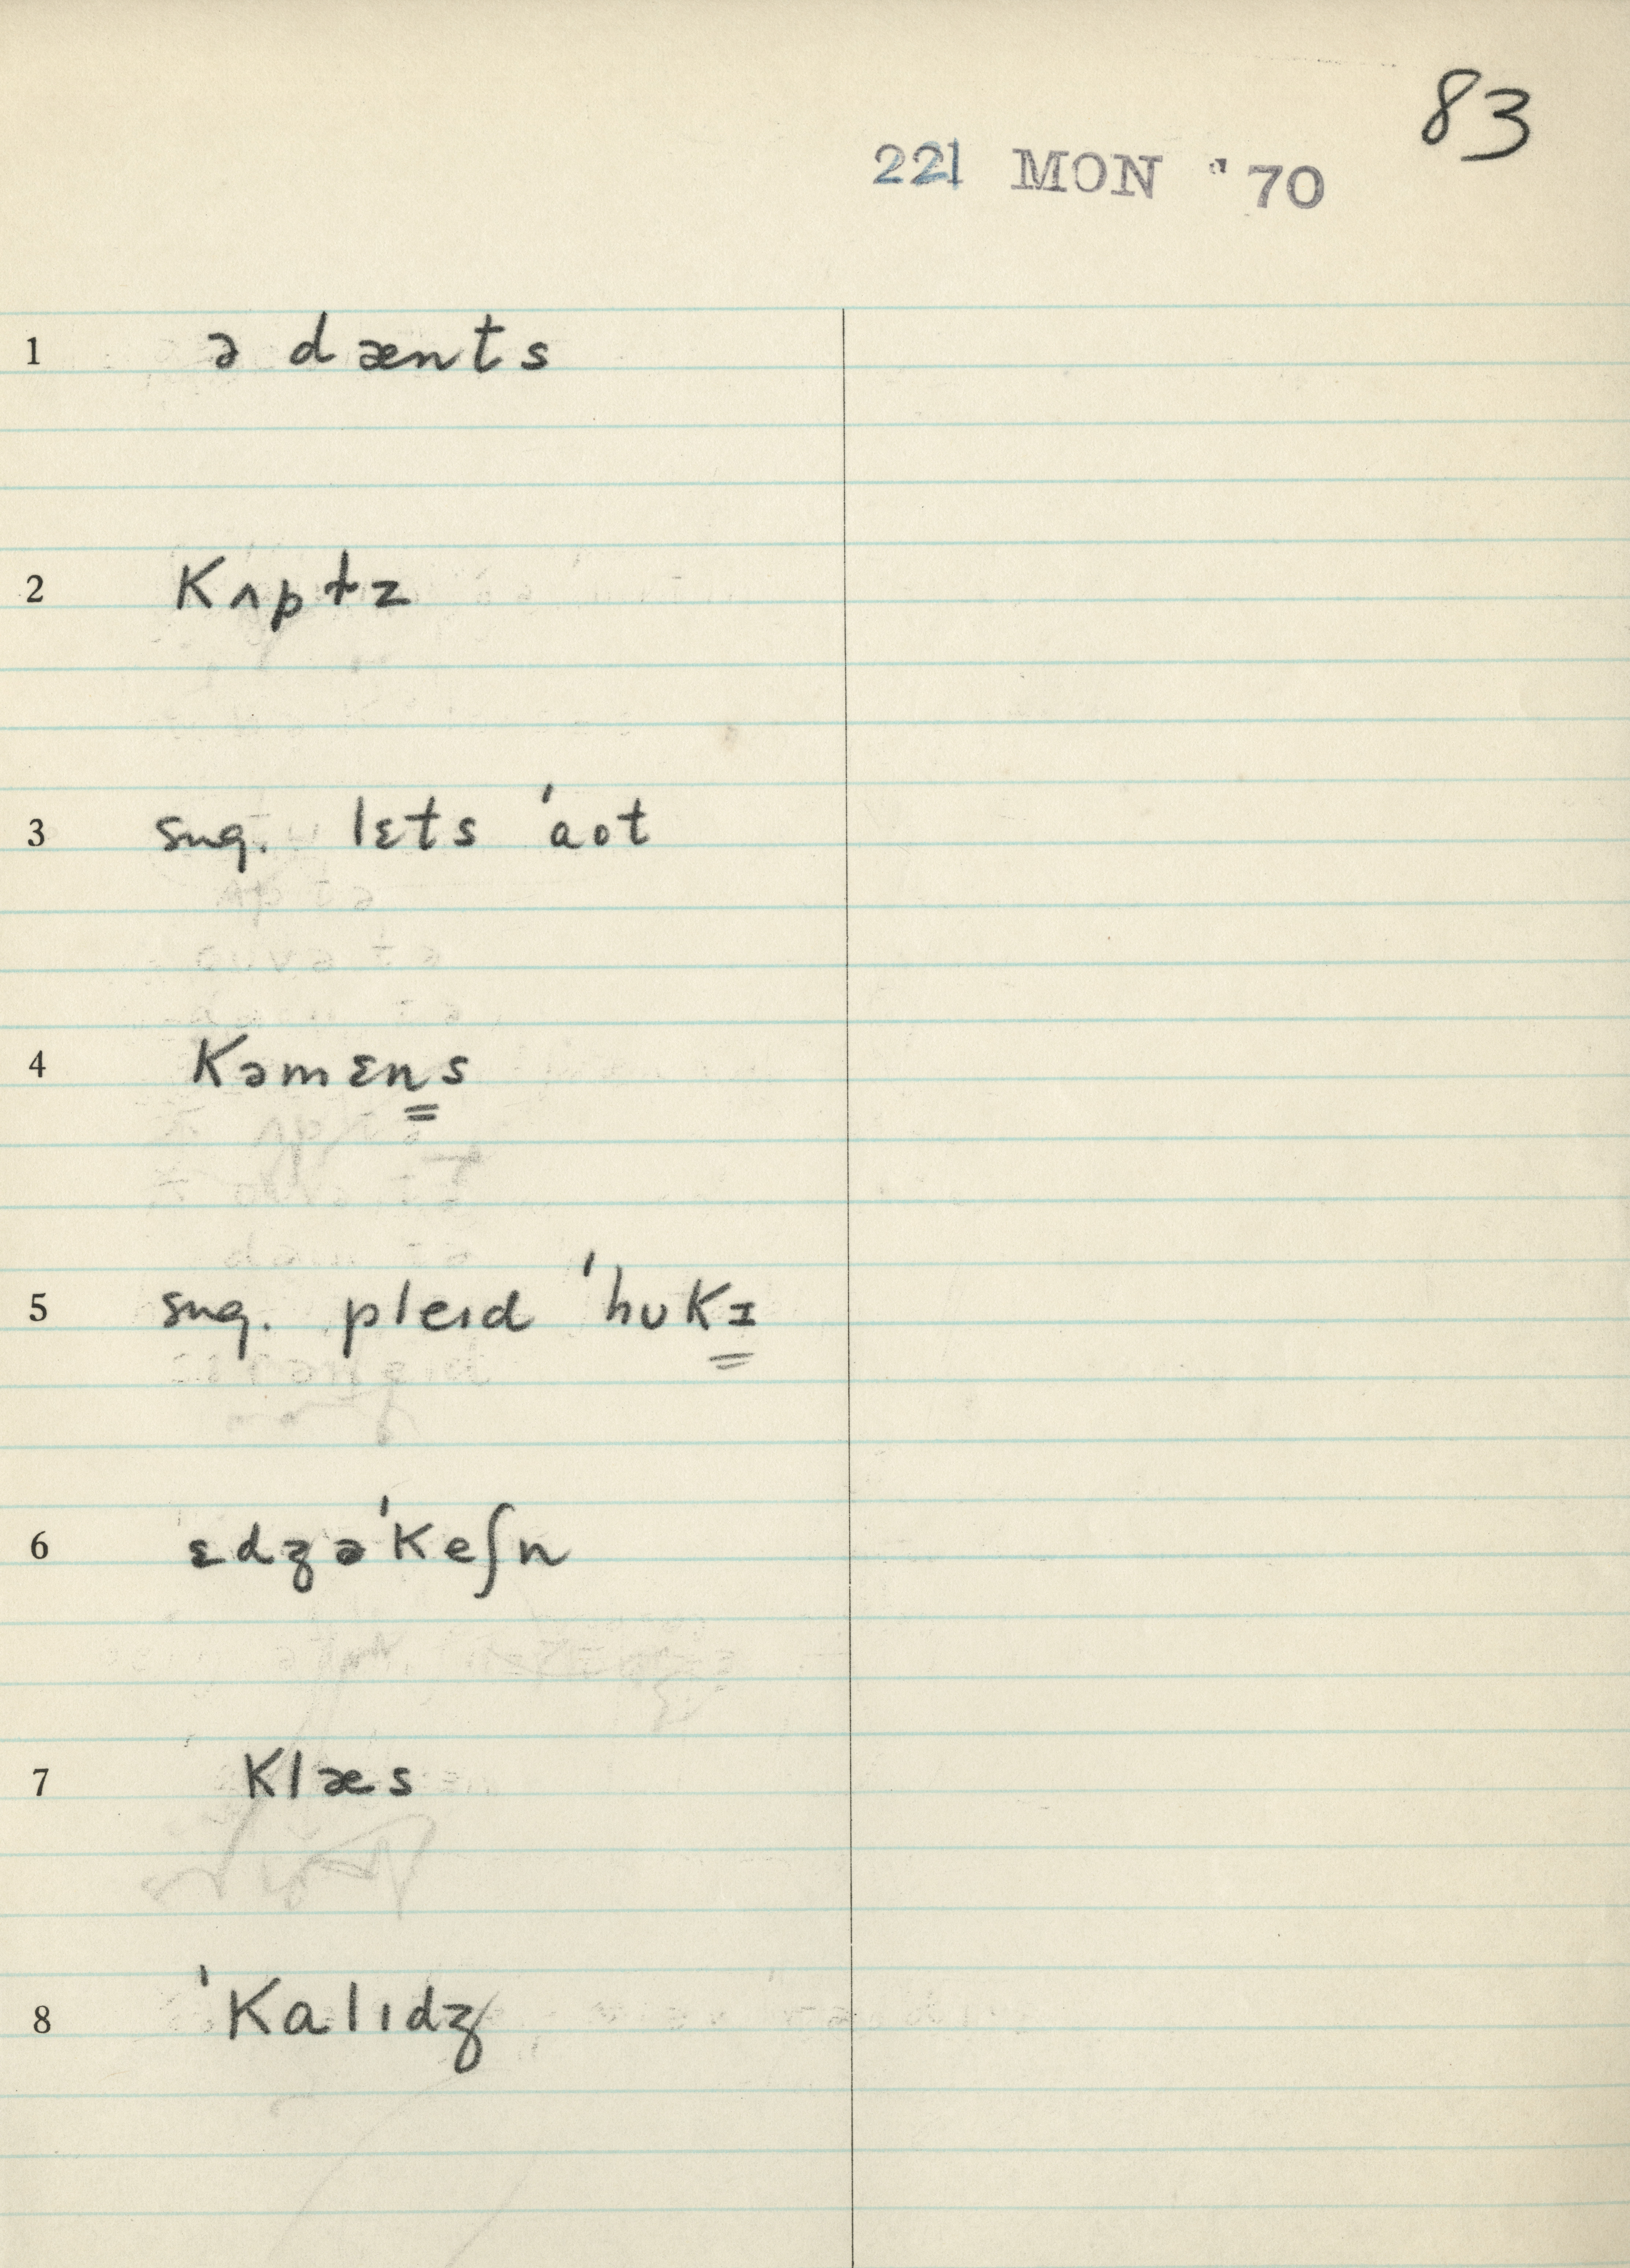 83
221 MON '70
1 ə dænts
2 Kʌptz
3 sug. lɛts 'aot
4 Kəmɛns
5 sug. pleɪd 'hʊKɪ
6 ɛdʒə'Keʃn
7 Klæs
8 'Kalɪdʒ